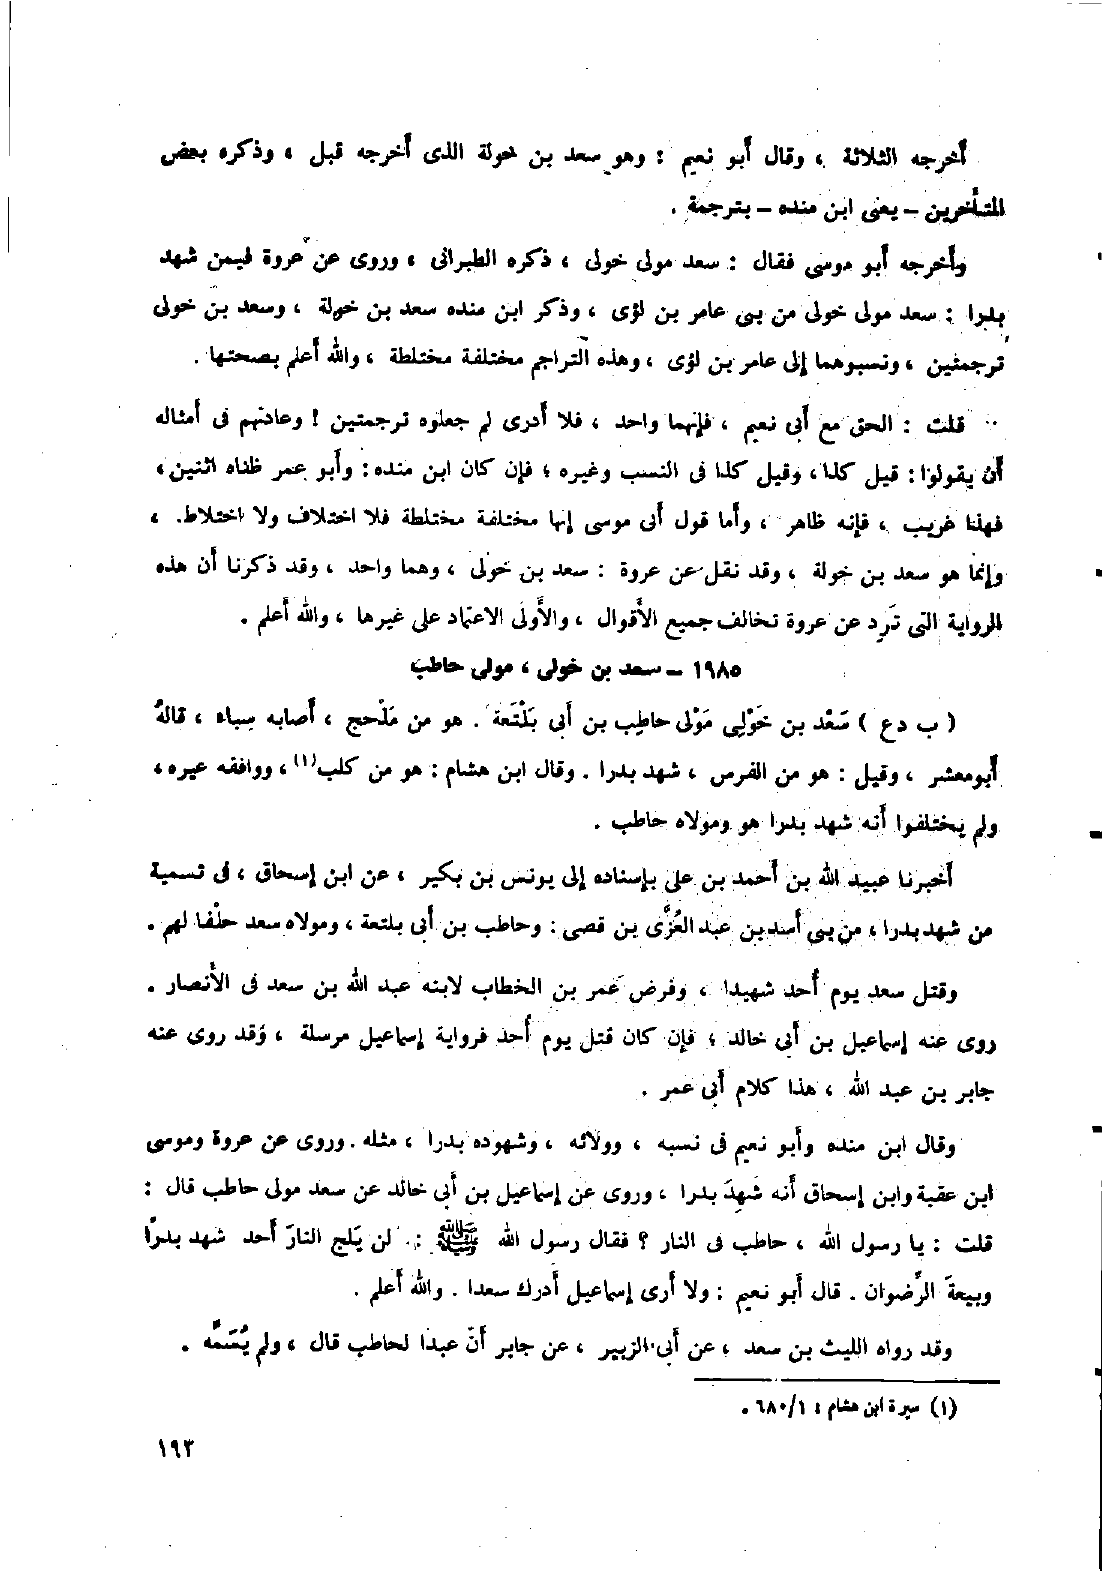 أخرجه الثلاثة ، وقال أبو نعيم : وهو سعد بن خولة الذى أخرجه قبل ، وذكره بعض
المتأخرين – يعنى ابن منده – بترجمة .
وأخرجه أبو موسى فقال : سعد مولى خولى ، ذكره الطبرانى ، وروى عن عروة فيمن شهد
بدرا : سعد مولى خولى من بنى عامر بن لؤى ، وذكر ابن منده سعد بن خولة ، وسعد بن خولى
ترجمتين ، ونسبوهما إلى عامر بن لؤى ، وهذه التراجم مختلفة مختلطة ، والله أعلم بصحتها .
قلت : الحق مع أبى نعيم ، فإنهما واحد ، فلا أدرى لم جعلوه ترجمتين ! وعادتهم فى أمثاله
أن يقولوا : قيل كذا ، وقيل كذا فى النسب وغيره ؛ فإن كان ابن منده : وأبو عمر ظناه اثنين ،
فهذا غريب ، فإنه ظاهر ، وأما قول أبى موسى إنها مختلفة مختلطة فلا اختلاف ولا اختلاط. ،
وإنما هو سعد بن خولة ، وقد نقل عن عروة : سعد بن خولى ، وهما واحد ، وقد ذكرنا أن هذه
الرواية التى تَرِد عن عروة تخالف جميع الأقوال ، والأولى الاعتماد على غيرها ، والله أعلم .
١٩٨٥ – سعد بن خولى ، مولى حاطب
( ب د ع ) سَعْد بن خَوْلِى مَوْلى حاطِب بن أبى بَلْتَعة . هو من مَذْحج ، أصابه سِباء ، قالهُ
أبومعشر ، وقيل : هو من الفرس ، شهد بدرا . وقال ابن هشام : هو من كلب(١) ، ووافقه غيره ،
ولم يختلفوا أنه شهد بدرا هو ومولاه حاطب .
أخبرنا عبيد الله بن أحمد بن على بإسناده إلى يونس بن بكير ، عن ابن إسحاق ، فى تسمية
من شهد بدرا ، من بنى أسد بن عبد العُزَّى بن قصى : وحاطب بن أبى بلتعة ، ومولاه سعد حلْفا لهم .
وقتل سعد يوم أُحد شهيدا ، وفرض عُمر بن الخطاب لابنه عبد الله بن سعد فى الأنصار .
روى عنه إسماعيل بن أبى خالد ؛ فإن كان قتل يوم أُحد فرواية إسماعيل مرسلة ، وقد روى عنه
جابر بن عبد الله ، هذا كلام أبى عمر .
وقال ابن منده وأبو نعيم فى نسبه ، وولائه ، وشهوده بدرا ، مثله . وروى عن عروة وموسى
ابن عقبة وابن إسحاق أنه شهِدَ بدرا ، وروى عن إسماعيل بن أبى خالد عن سعد مولى حاطب قال :
قلت : يا رسول الله ، حاطب فى النار ؟ فقال رسول الله ﷺ : لن يَلج النارَ أحد شهد بدرًا
وبيعةَ الرِّضوان . قال أبو نعيم : ولا أرى إسماعيل أدرك سعدا . والله أعلم .
وقد رواه الليث بن سعد ، عن أبى الزبير ، عن جابر أنّ عبدًا لحاطب قال ، ولم يُسَمِّه .
(١) سيرة ابن هشام : ١/ ٦٨٠ .
١٩٣